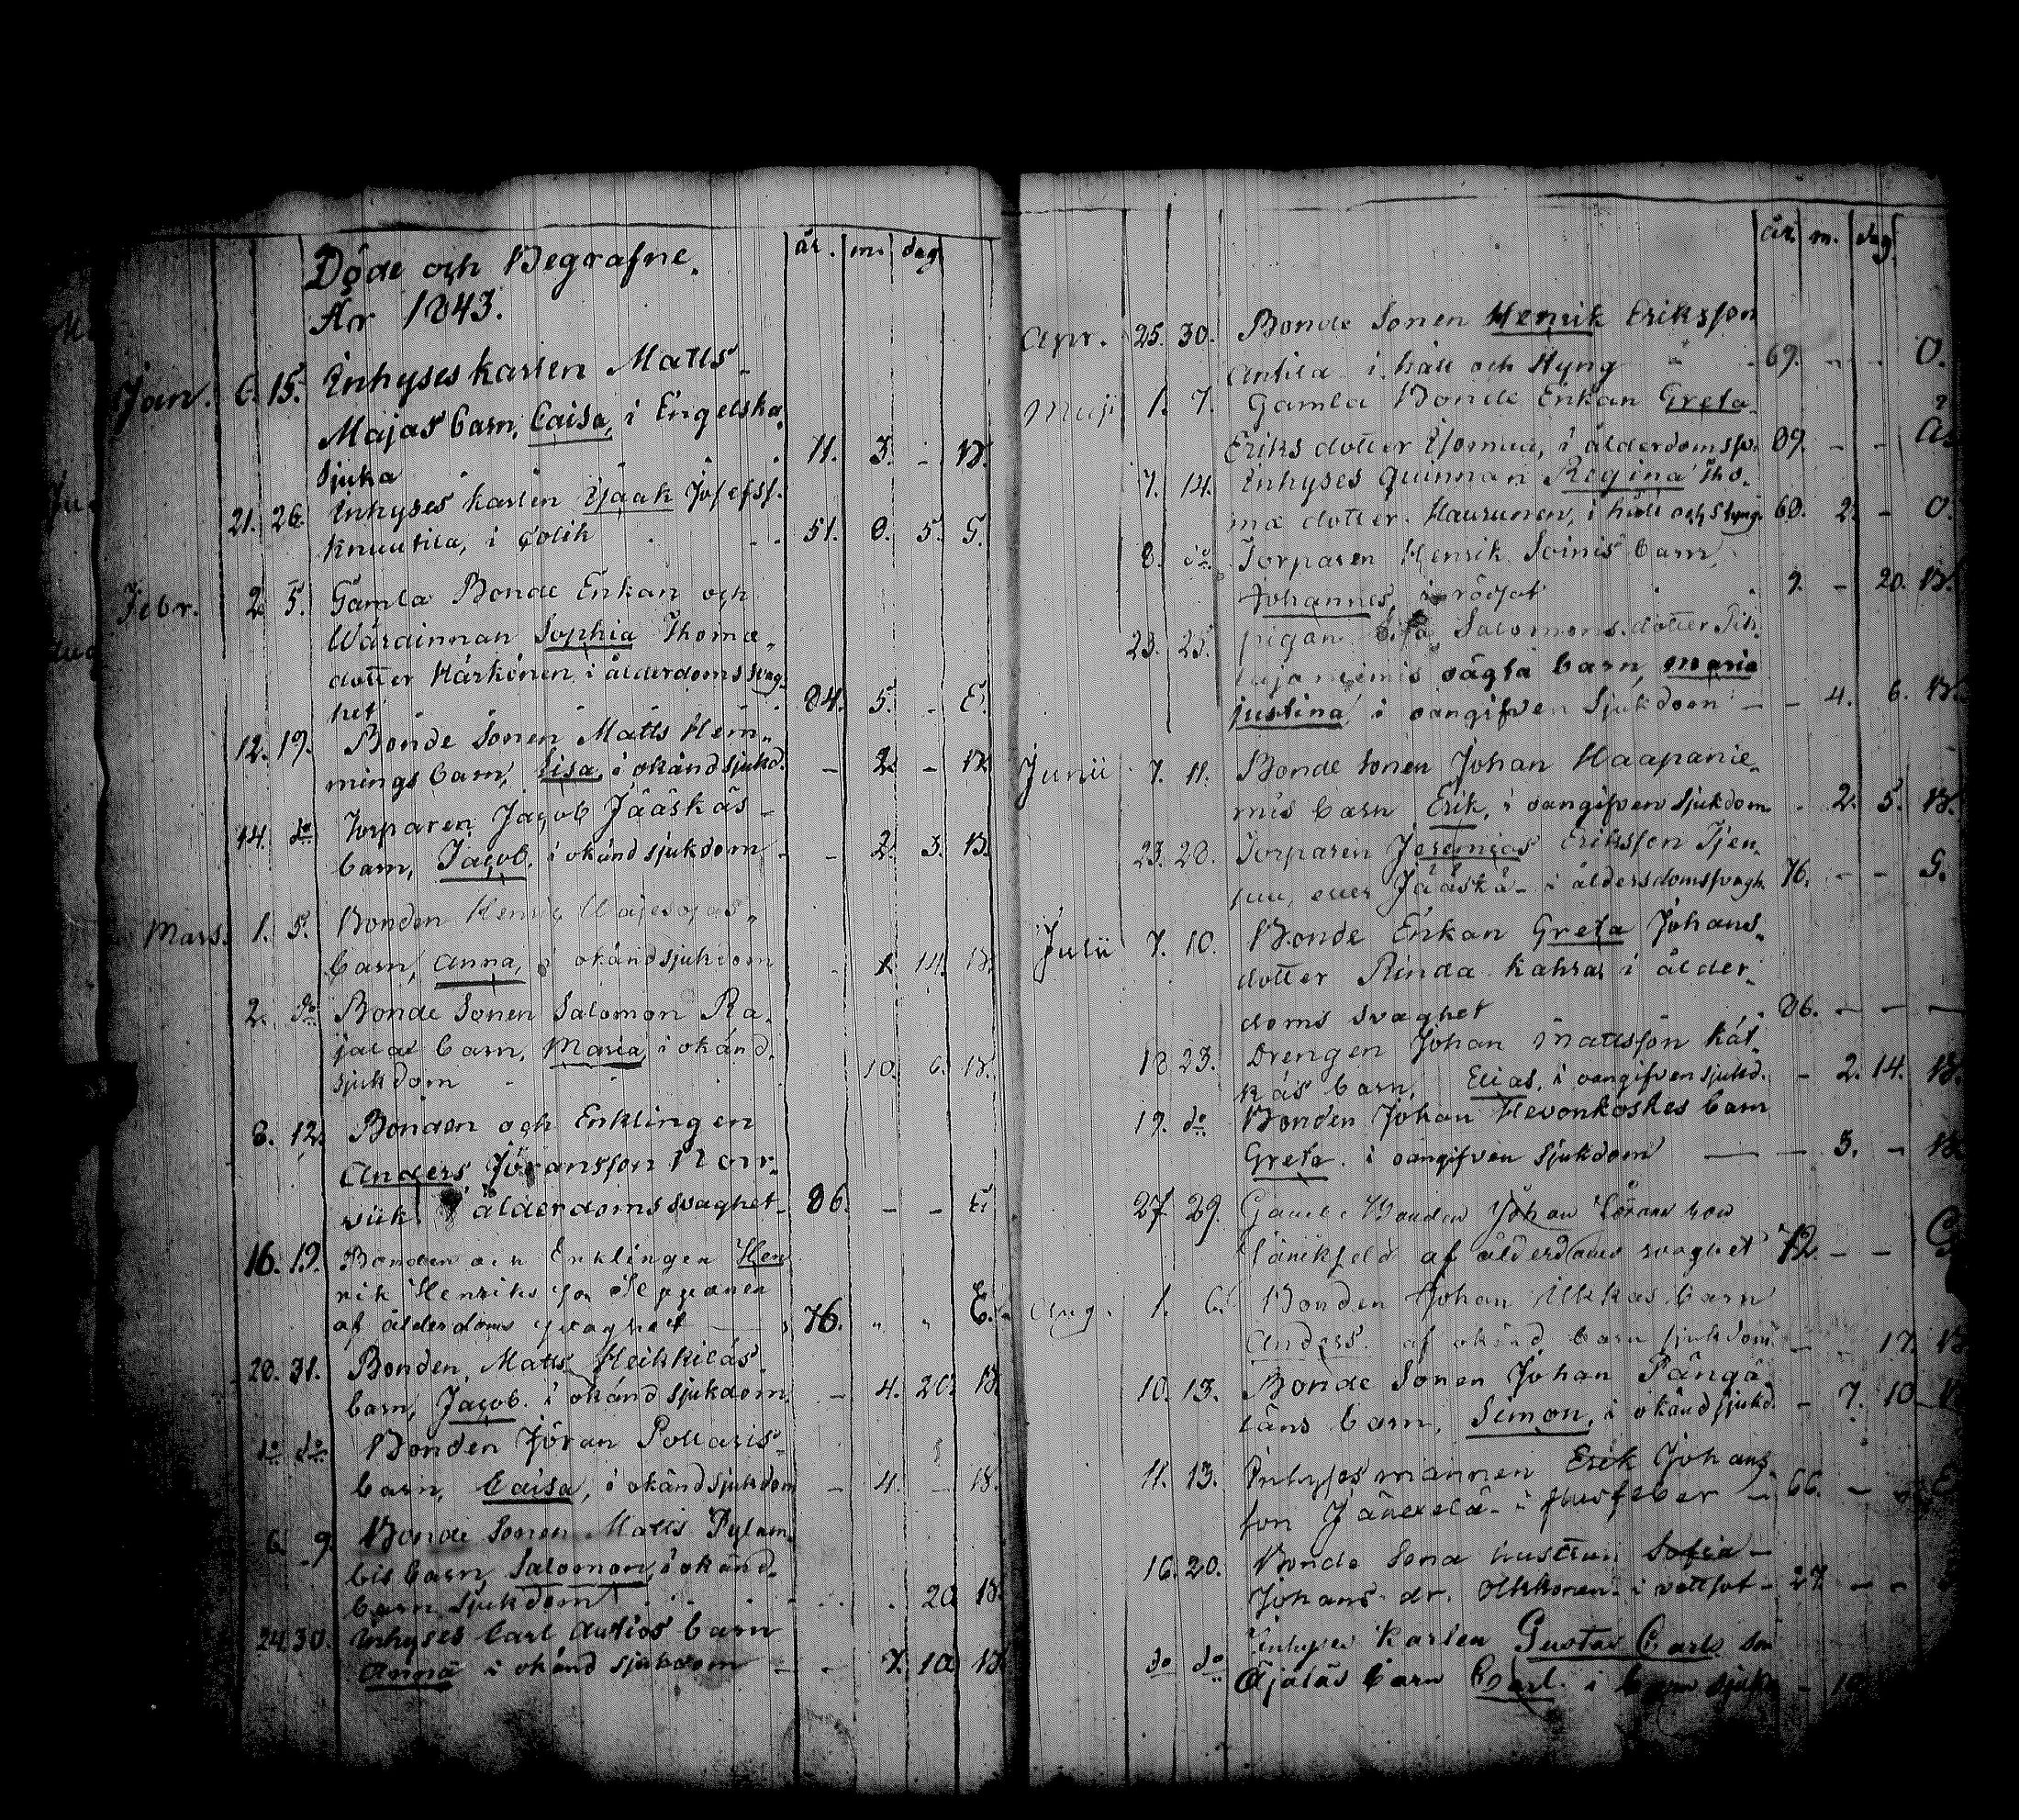 Döde och Begrafne.
År 1843.
år. m. dag
Jan. 6. 15. Enhyses karlen Matts
Majas barn, Caisa, i Engelska
sjuka 11. 3. - B.
21. 26. Enhyses karlen Isaak Josefss.
Knuutila, i Colik 51. 8. 5. G.
Febr. 2. 5. Gamla Bonde Enkan och
Wärdinnan Sophia Thomæ
dotter Härkönen, i ålderdoms svag-
het 84. 5. - E.
12. 19. Bonde Sonen Matts Hem-
mings barn, Lisa, i okänd sjukd. - 2. - B.
14. do Torparen Jacob Jääskäs
barn, Jacob, i okänd sjukdom - 2. 3. B.
Mars. 1. 5. Bonden Henric
barn, Anna, i okänd sjukdom 1. 14. B.
2. do Bonde Sonen Salomon Ra-
jalas barn, Maria, i okänd
sjukdom 10. 6. B.
8. 12. Bonden och Enklingen
Anders Jöransson Norr-
viik, i ålderdoms svaghet 86. - - E
16. 19. Bonden och Enklingen Hen
rik Henriksson Seppänen
af ålderdoms svaghet 76. " " E.
28. 31. Bonden, Matts Heikkiläs
barn, Jacob, i okänd sjukdom. - 4. 20. B.
do do Bonden Jöran Pollaris
barn, Caisa, i okänd sjukdom - 4. - B.
6. 9. Bonde Sonen Matts
barn Salomon, i okänd
barn sjukdom 20 B.
24. 30. Inhyses Carl Autios barn
Anna i okänd sjukdom - - 7. 10 B
år. m. dag.
Apr. 25. 30. Bonde Sonen Henrik Eriksson
Antila i håll och styng 69. - - O.
Maji 1. 7. Gamla Bonde Enkan Greta
Eriks dotter i ålderdomssv. 89. - -
7. 14. Enhyses Quinnan Regina Tho-
mæ dotter Haurunen, i håll och styng 60. 2. - O.
8. do Torparen Henrik Soinis barn
Johannes, i rödsot 9. - 20. B.
23. 25. pigan Lisa Salomons dotter Pih-
lajaniemis oägta barn, Maria
Justina, i oangifven Sjukdom - - 4. 6. B.
Junii 7. 11. Bonde Sonen Johan Haapanie-
mis barn Erik, i oangifven sjukdom - 2. 5. B.
23. 28. Torparen Jeremias Eriksson Tjeu-
juu, eller Jääskä i ålderdomssvagh. 76. - - G.
Julii 7. 10. Bonde Enkan Greta Johans
dotter Rinda Kahras i ålder-
doms svaghet 86. - - -
18 23. Drengen Johan Mattsson Kät-
käs barn, Elias, i oangifven sjukd. - 2. 14. B.
19. do Bonden Johan Hevonkoskes barn
Greta i oangifven Sjukdom - - 3. - B.
27 29. Gamle Bonden Johan Göransson
af ålderdoms svaghet 72. - -
Aug. 1. 6. Bonden Johan Ukkas barn
Anders af okänd barn sjukdom - - 17. B
10. 13. Bonde Sonen Johan Pängä
läns barn, Simon, i okänd sjukd. - 7. 10
11. 13. Inhysesmannen Erik Johans
son i 66. -
16. 20. Bonde Sona hustrun Sofia
Johans dr. Okkonen i vattsot - 27 - -
do do Inhyses Karlen Gustav Carls son
Äjäläs barn Carl i barn sjukd - 10